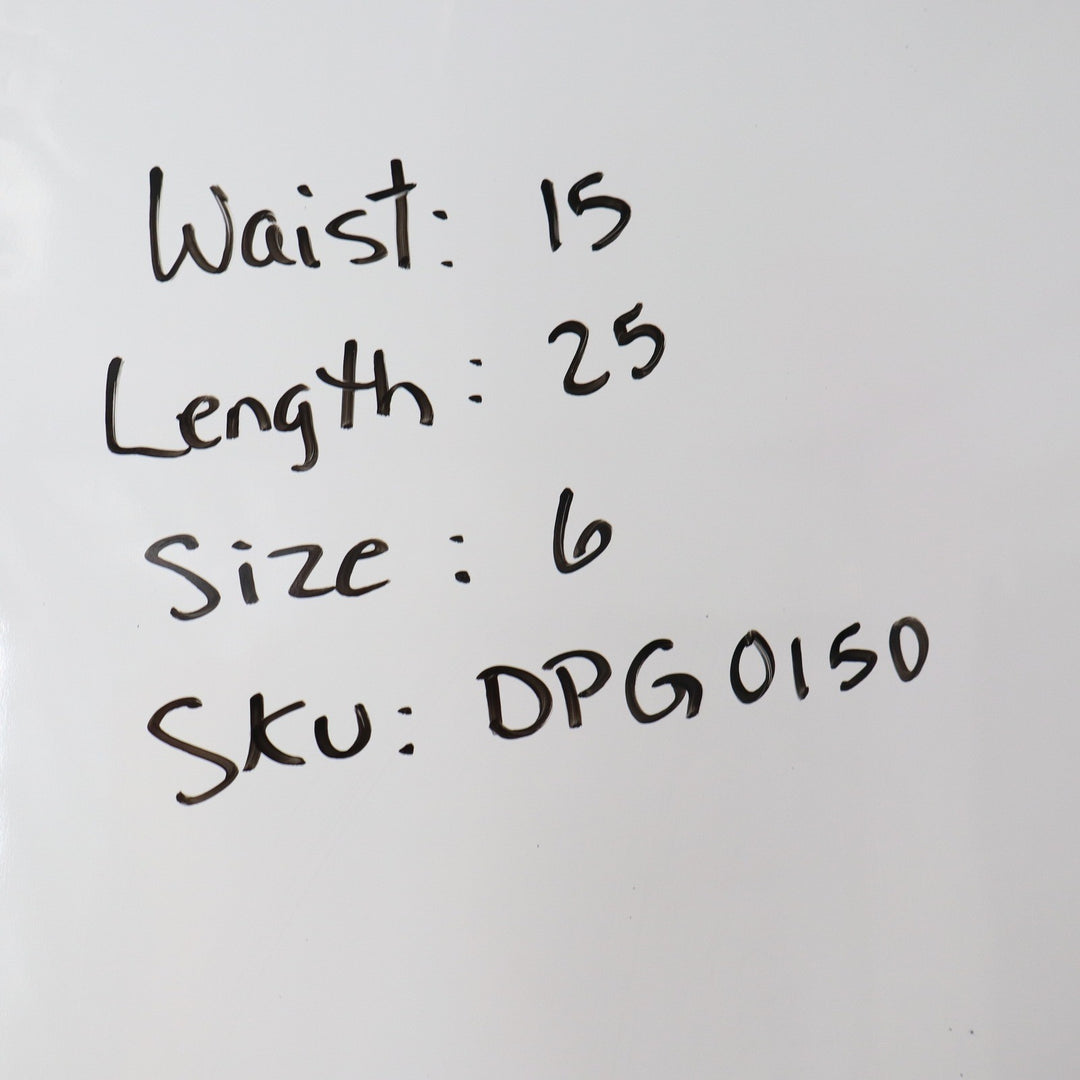 Waist: 15
Length: 25
Size: 6
SKU: DPG0150